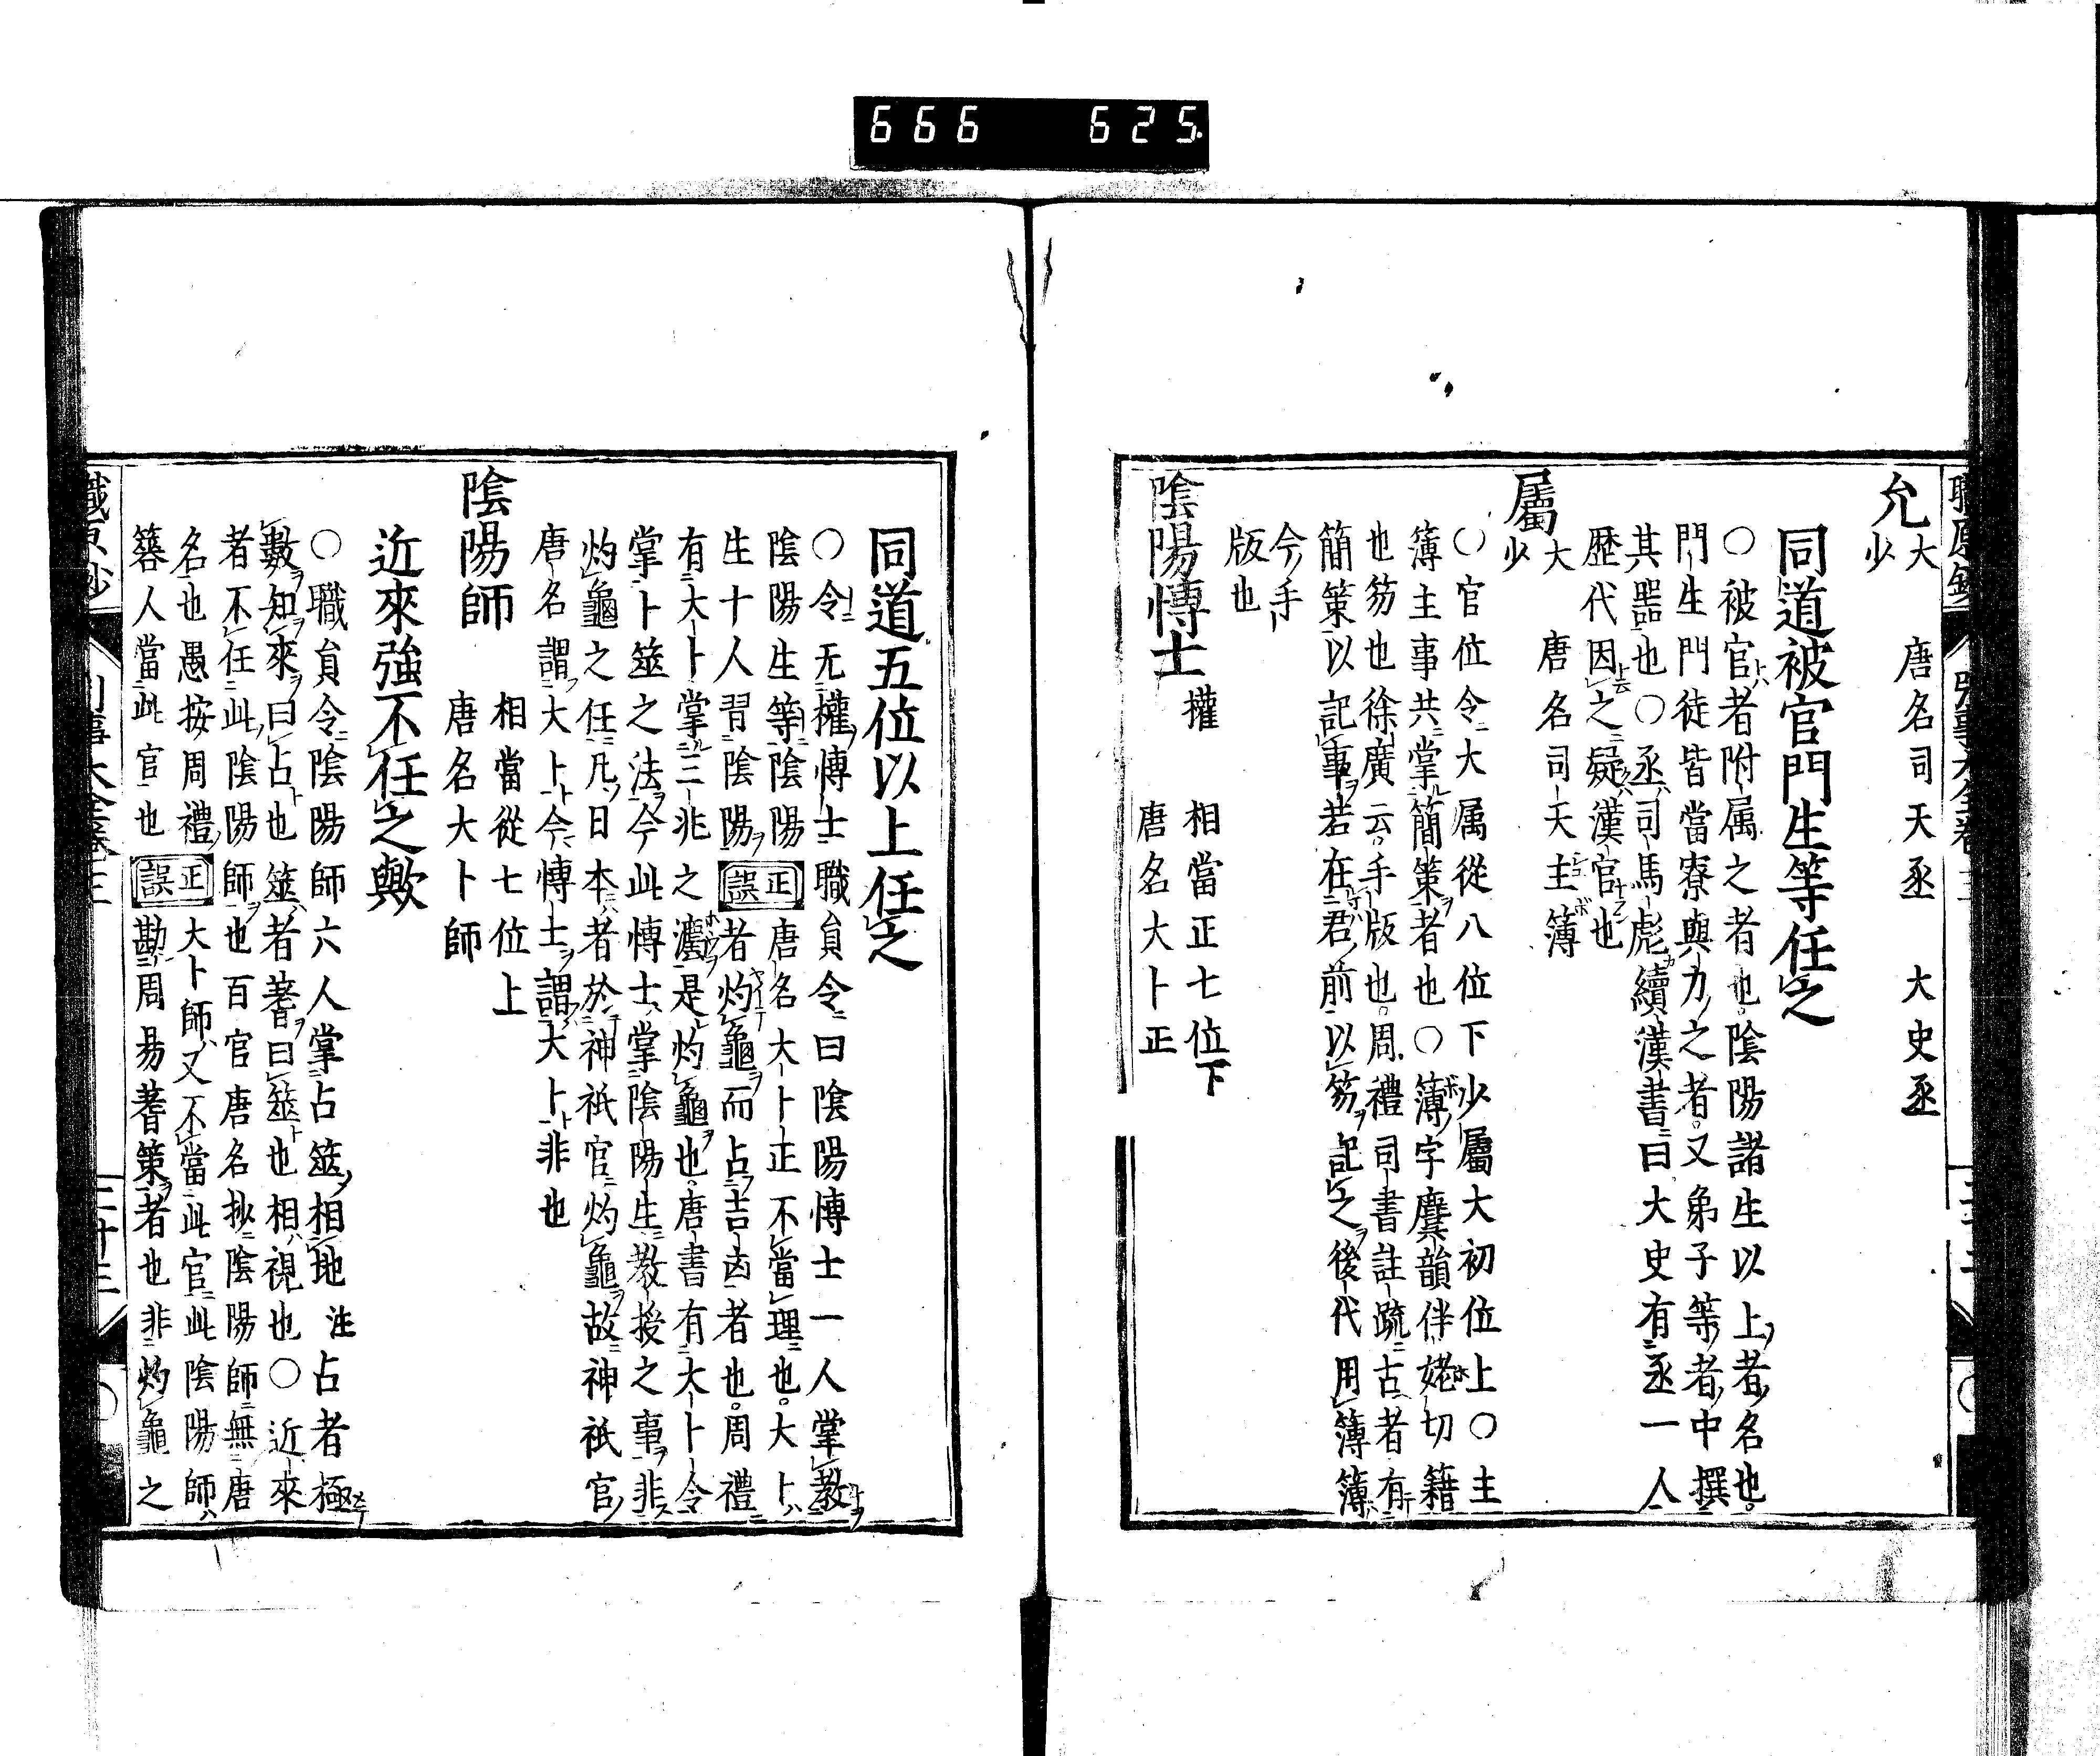 666 625
允 大少 唐名司天丞 大史丞
同道被官門生等任之
○被官者附属之者也陰陽諸生以上者名也
門生門徒皆當寮與力之者又弟子等者中撰
其器也○丞司馬彪續漢書曰大史有丞一人
歴代因之疑漢官也
屬 大少 唐名司天主簿
○官位令大属從八位下少屬大初位上○主
簿主事共掌簡策者也○簿字麌韻伴姥切籍
也笏也徐廣云手版也周禮司書註疏古者有
簡策以記事若在君前以笏記之後代用簿簿
今手
版也
陰陽博士 權 相當正七位下
唐名大卜正
同道五位以上任之
○令无權博士職員令曰陰陽博士一人掌教
陰陽生等陰陽 唐名大卜正不當理也大卜
生十人習陰陽 正誤 者灼龜而占吉凶者也周禮
有大卜掌三兆之灋是灼龜也唐書有大卜令
掌卜筮之法今此博士掌陰陽生教授之事非
灼龜之任凡日本者於神祇官灼龜故神祇官
唐名謂大卜今博士謂大卜非也
陰陽師 相當從七位上
唐名大卜師
近來強不任之歟
○職員令陰陽師六人掌占筮相地 注占者極
數知來曰占也筮者蓍曰筮也相視也○近來
者不任此陰陽師也百官唐名抄陰陽師無唐
名也愚按周禮 正誤 大卜師又不當此官此陰陽師
簭人當此官也 勘周易蓍策者也非灼龜之